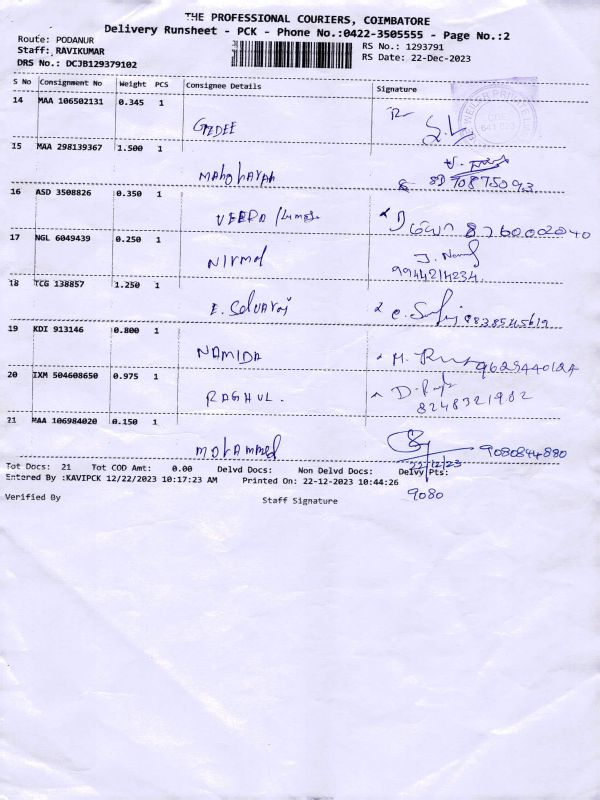 THE PROFESSIONAL COURIERS, COIMBATORE
Delivery Runsheet - PCK - Phone No.:0422-3505555 - Page No.:2
Route: PODANUR
RS No.: 1293791
Staff: RAVIKUMAR
RS Date: 22-Dec-2023
DRS No.: DCJB129379102
S No Consignment No Weight PCS Consignee Details Signature
14 MAA 106502131 0.345 1
15 MAA 298139367 1.500 1
16 ASD 3508826 0.350 1
VEERA
17 NGL 6049439 0.250 1
Nirmal
9944214234
18 TCG 138857 1.250 1
E. Selvaraj
19 KDI 913146 0.800 1
NAMIDA
20 IXM 504608650 0.975 1
RAGHUL.
8248321982
21 MAA 106984020 0.150 1
mohammed
9080844880
22/12/23
Tot Docs: 21 Tot COD Amt: 0.00 Delvd Docs: Non Delvd Docs: Delvy Pts:
Entered By :KAVIPCK 12/22/2023 10:17:23 AM Printed On: 22-12-2023 10:44:26
9080
Verified By Staff Signature